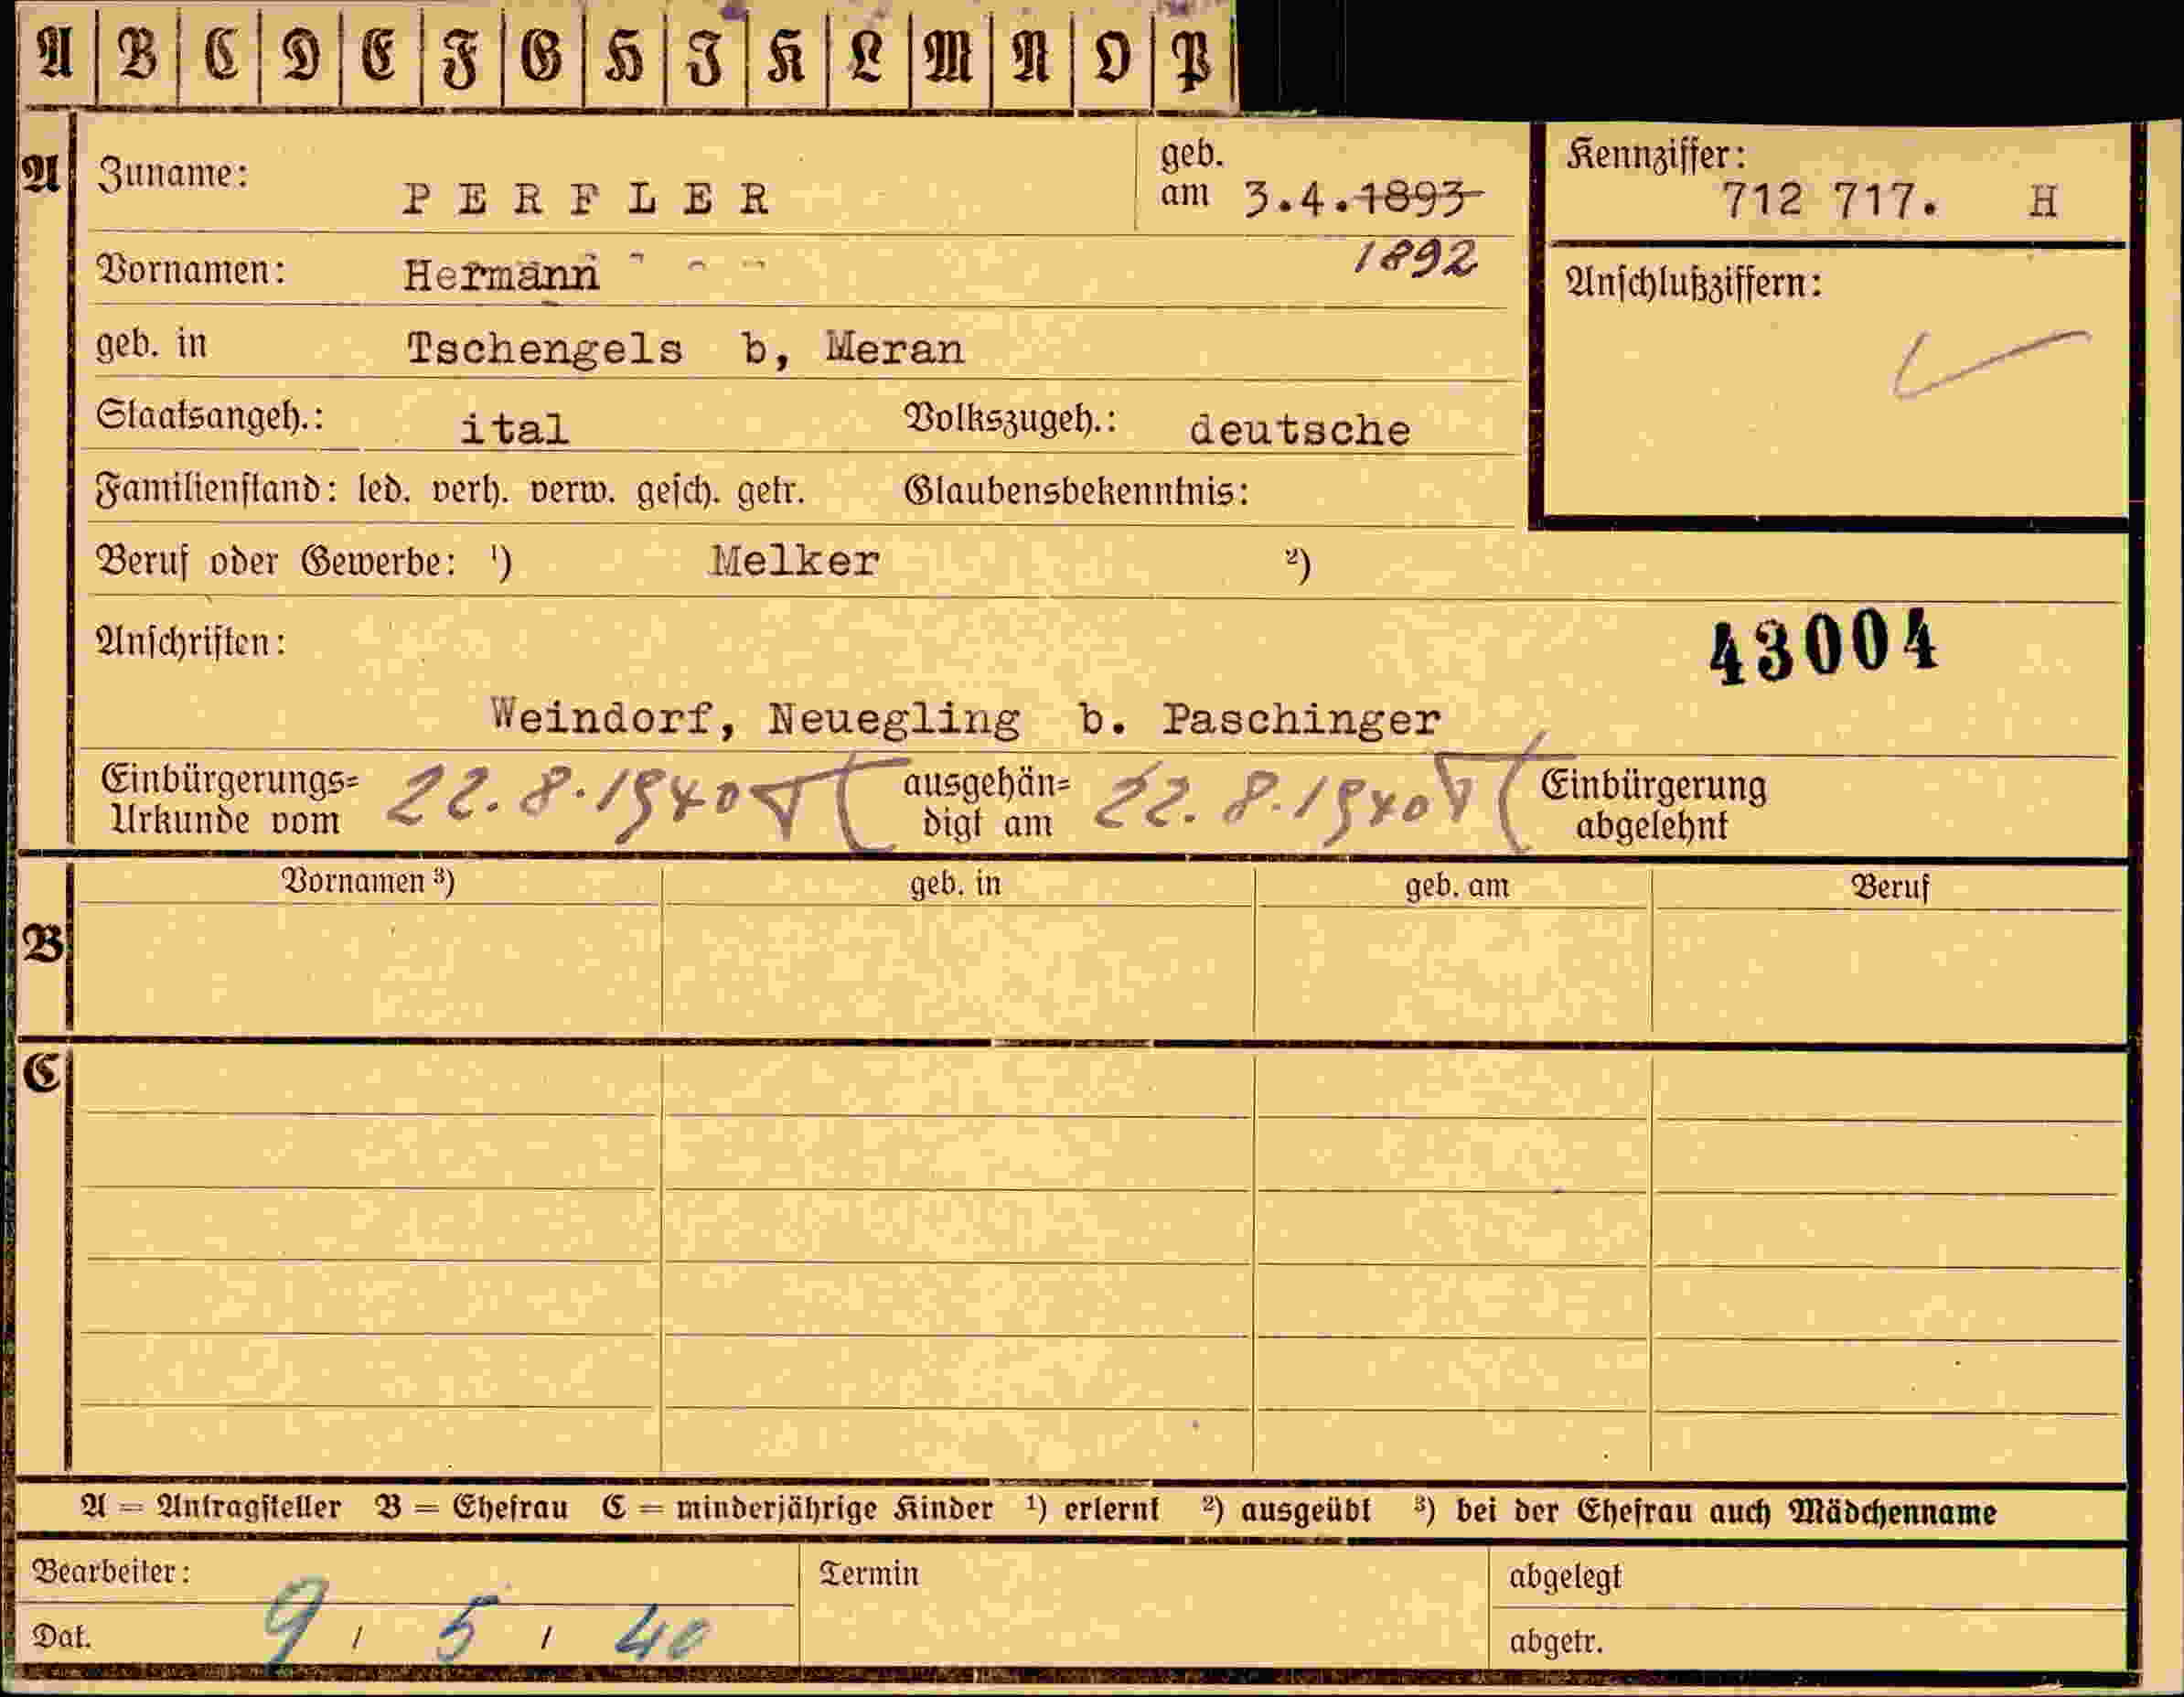 A B C D E F G H I K L M N O P
A Zuname: PERFLER geb. am 3.4.1893 Kennziffer: 712 717. H
1892
Vornamen: Hermann Anschlußziffern:
geb. in Tschengels b, Meran
Staatsangeh.: ital Volkszugeh.: deutsche
Familienstand: led. verh. verw. gesch. getr. Glaubensbekenntnis:
Beruf oder Gewerbe: ¹) Melker ²)
Anschriften: 43004
Weindorf, Neuegling b. Paschinger
Einbürgerungs= Urkunde vom 22.8.1940 ausgehän= digt am 22.8.1940 Einbürgerung abgelehnt
Vornamen ³) geb. in geb. am Beruf
B
C
A = Antragsteller B = Ehefrau C = minderjährige Kinder ¹) erlernt ²) ausgeübt ³) bei der Ehefrau auch Mädchenname
Bearbeiter: Termin abgelegt
Dat. 9 / 5 / 40 abgetr.